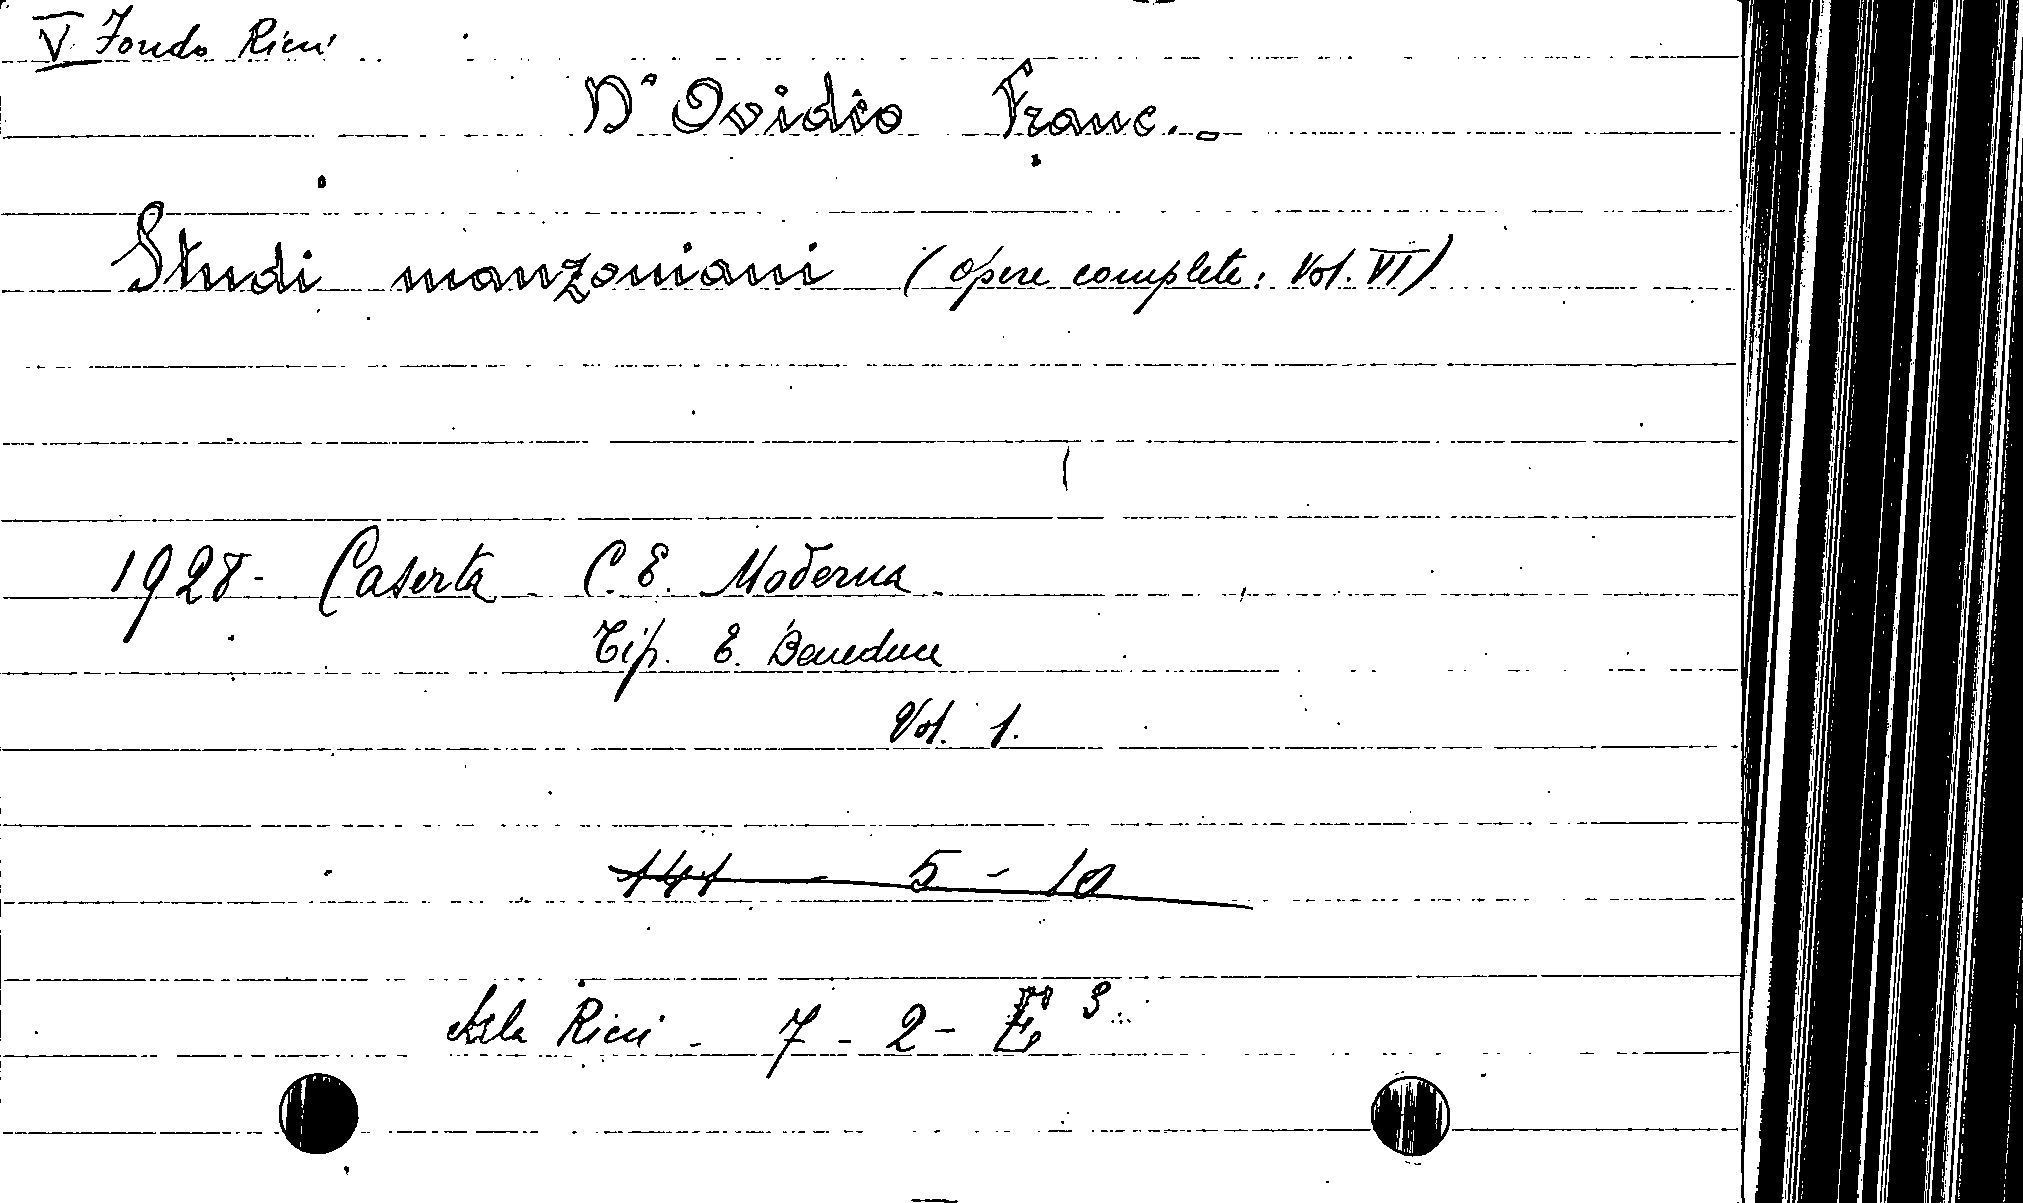 V Fondo Ricci
D'Ovidio Franc.
Studi manzoniani (opere complete: Vol. VI)
1928 - Caserta C. E. Moderna
Tip. E. Beneduce
Vol. 1.
141 - 5 - 10
Sala Ricci - 7 - 2 - E